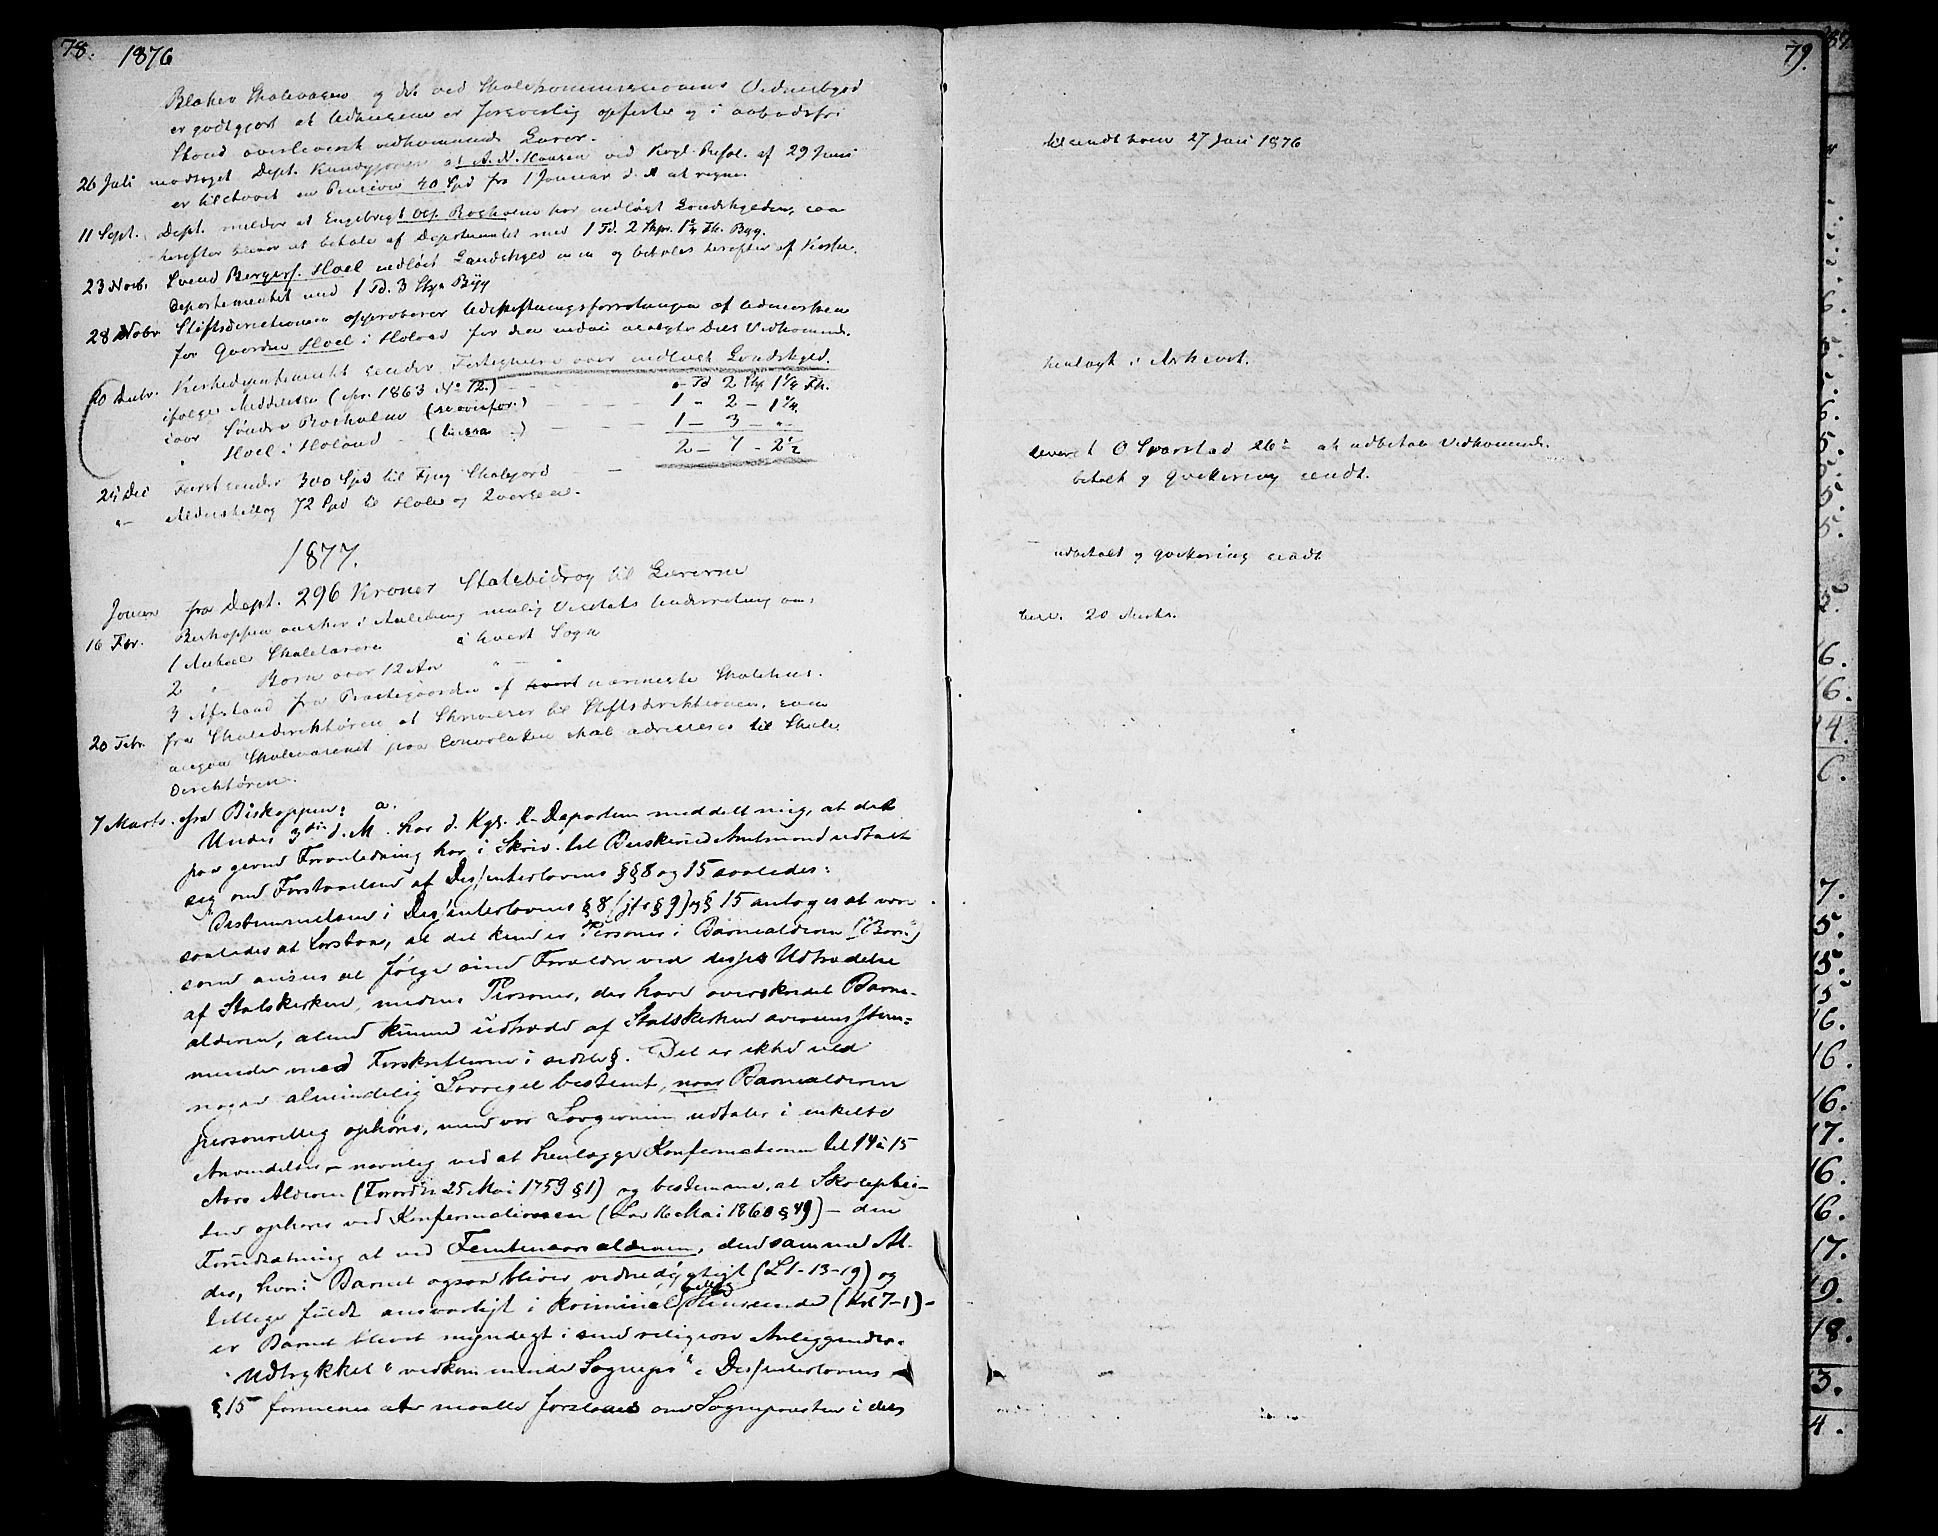 78. 1876
Skolevæsen og det ved Skolekommissionens Vidnesbyrd
er godtgjort at Udhusene er forsvarlig opførte og i aabodsfri
Stand overleveret vedkommende Lærer.
26 Juli modtaget Dept. Kundgjørelse at A. N. Hansen ved Kngl. Resol. af 29 Juni
er tilstaaet en Pension 40 Spd fra 1 Januar d. A at regne.
11 Sept. Dept. melder at Engebregt Ols. Rosholm har indløst Landskylden, saa
herefter bliver at betale af Departementet med 1 Td. 2 Skpr. 1 1/4 Fk. Byg.
23 Novb. Svend Bergers. Hoel indløst Landskyld og betales herefter af Kirke
Departementet med 1 Td. 3 Skpr Byg
28 Novbr Stiftsdirectionen approberer Udskiftningsforretningen af Udmarken
for Gaarden Hoel i Holand for den Vedkommende.
20 Decbr. Kirkedepartementet sender Fortegnelse over indløst Landskyld.
ifølge Meddelelse (Apr. 1863 No 12.) - - " Td 2 Skp. 1 1/4 Fk.
Søndre Rosholm (se ovenfor.) - - - 1 " 2 - 1 1/4
" Hoel i Holand - ( ) - - - 1 - 3 - "
2 - 7 - 2 1/2
Dec Spd til Fjug Skolejord -
" 72 Spd til
1877.
Januar fra Dept. 296 Kroner Skolebidrag til Lærerne
16 Febr. Biskoppen ønsker i Anledning mulig Visitats Underretning om:
1 Antal Skolelærere i hvert Sogn
2 " Børn over 12 Aar " - "
3 Afstand fra Præstegaarden af hvert nærmeste Skolehus.
20 Febr. fra Skoledirektøren at Skrivelser til Stiftsdirektionen, som
angaa Skolevæsenet paa Convolutten skal adresseres til Skole
Direktøren.
7 Marts. fra Biskoppen: a.
Under 3die d. M. har d. Kgl. K-Departem meddelt mig, at det
paa given Foranledning har i Skriv. til Buskerud Amtmand udtalt
sig om Forstaaelsen af Dissenterlovens §§8 og 15 saaledes:
"Bestemmelsen i Dissenterlovens § 8 (jfr § 9) og § 15 antages at være
saaledes at forstaa, at det kun er Personer i Barnealderen ("Børn")
som ansees at følge sine Forældre ved disses Udtrædelse
af Statskirken, medens Personer, der have overskredet Barne-
alderen, alene kunne udtræde af Statskirken overensstem-
mende med Forskrifterne i sidste §. Det er ikke ved
nogen almindelig Lovregel bestemt, naar Barnealderen
personellig ophører, men vor Lovgivning udtaler i enkelte
Anvendelser - navnlig ved at henlægge Konfirmationen til 14 à 15
Aars Alderen (Forordn 25 Mai 1759 §1) og bestemme, at Skolepligten
ophører ved Konfirmationen (Lov 16 Mai 1860 § 49) - den
Forudsætning at ved Femtenaarsalderen, den samme Al-
der, hvori Barnet ogsaa bliver vidnedygtigt (L 1-13-19) og
tillige fuldt ansvarligt i kriminel Henseende (Krl 7-1) -
er Barnet blevet myndigt i sine religiøse Anliggender.
Udtrykket "vedkommende Sognepr" i Dissenterlovens
§ 15 formenes at maatte forstaaes om Sognepræsten i det
79.
tilsendt ham 27 Juli 1876
henlagt i Arkivet.
leveret O Sparstad at udbetale Vedkommende.
betalt og Qvittering sendt.
- udbetalt og Qvittering sendt
besv. 20 Marts.